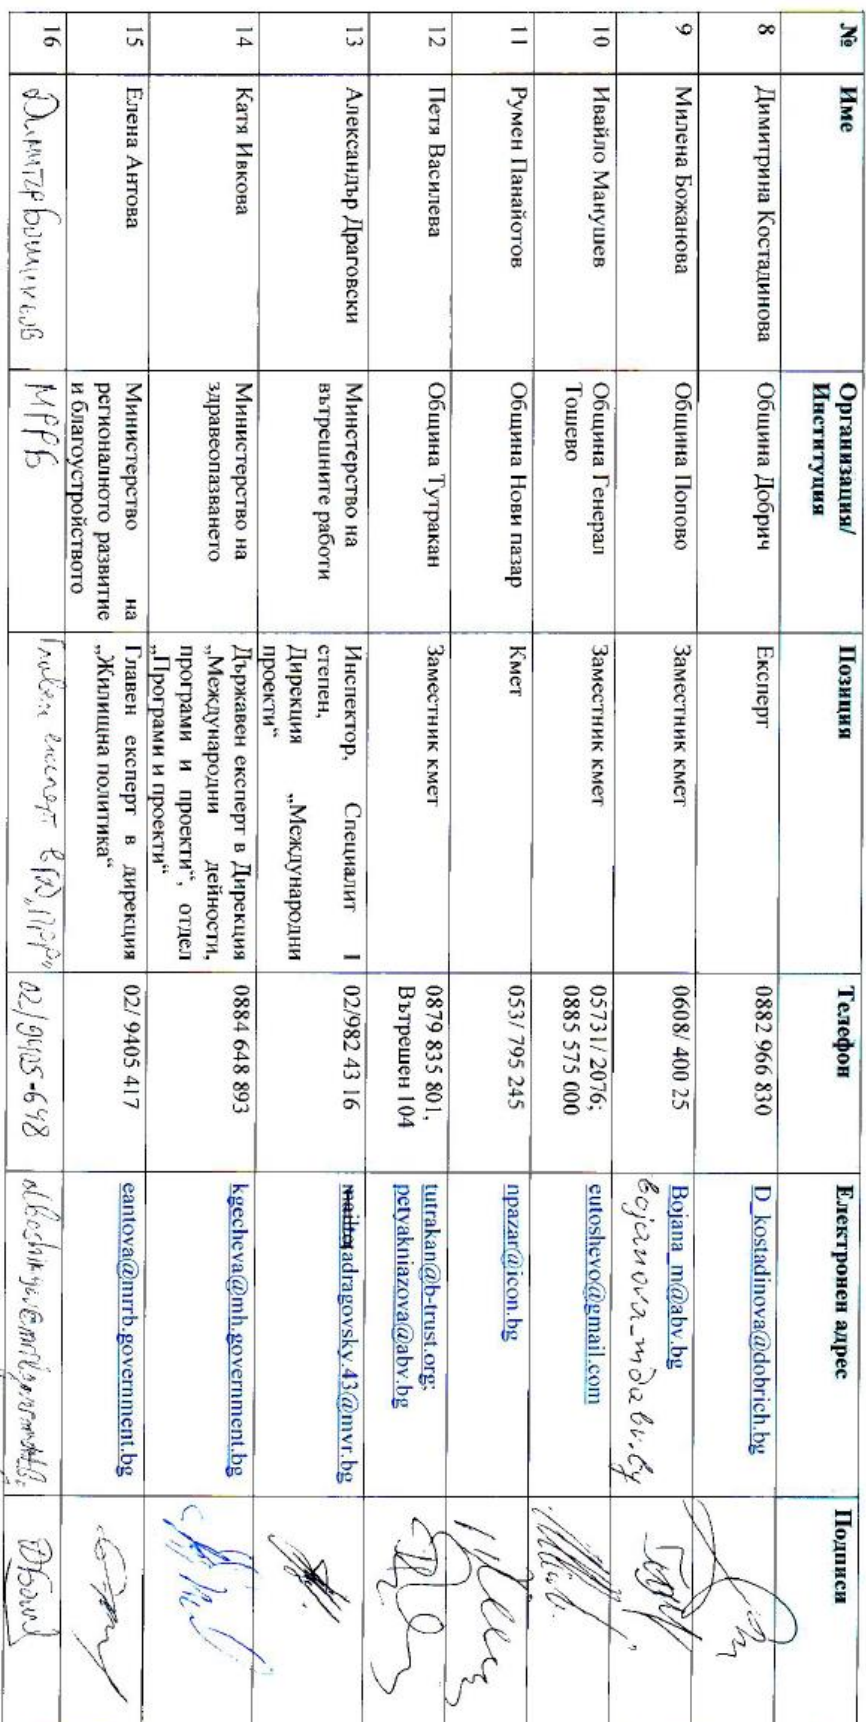 № Име Организация/ Институция Позиция Телефон Електронен адрес Подписи
8 Димитрина Костадинова Община Добрич Експерт 0882 966 830 D_kostadinova@dobrich.bg
9 Милена Божанова Община Попово Заместник кмет 0608/ 400 25 Bojana_m@abv.bg
bojanova_m@abv.bg
10 Ивайло Манушев Община Генерал Тошево Заместник кмет 05731/ 2076; 0885 575 000 eutoshevo@gmail.com
11 Румен Панайотов Община Нови пазар Кмет 053/ 795 245 npazar@icon.bg
12 Петя Василева Община Тутракан Заместник кмет 0879 835 801, Вътрешен 104 tutrakan@b-trust.org; petyakniazova@abv.bg
13 Александър Драговски Минстерство на вътрешните работи Инспектор, Специалит I степен, Дирекция „Международни проекти“ 02/982 43 16 mailto:adragovsky.43@mvr.bg
14 Катя Ивкова Министерство на здравеопазването Държавен експерт в Дирекция „Международни дейности, програми и проекти“, отдел „Програми и проекти“ 0884 648 893 kgecheva@mh.government.bg
15 Елена Антова Министерство на регионалното развитие и благоустройството Главен експерт в дирекция „Жилищна политика“ 02/ 9405 417 eantova@mrrb.government.bg
16 Димитър МРРБ Главен експерт в 02/9405-648